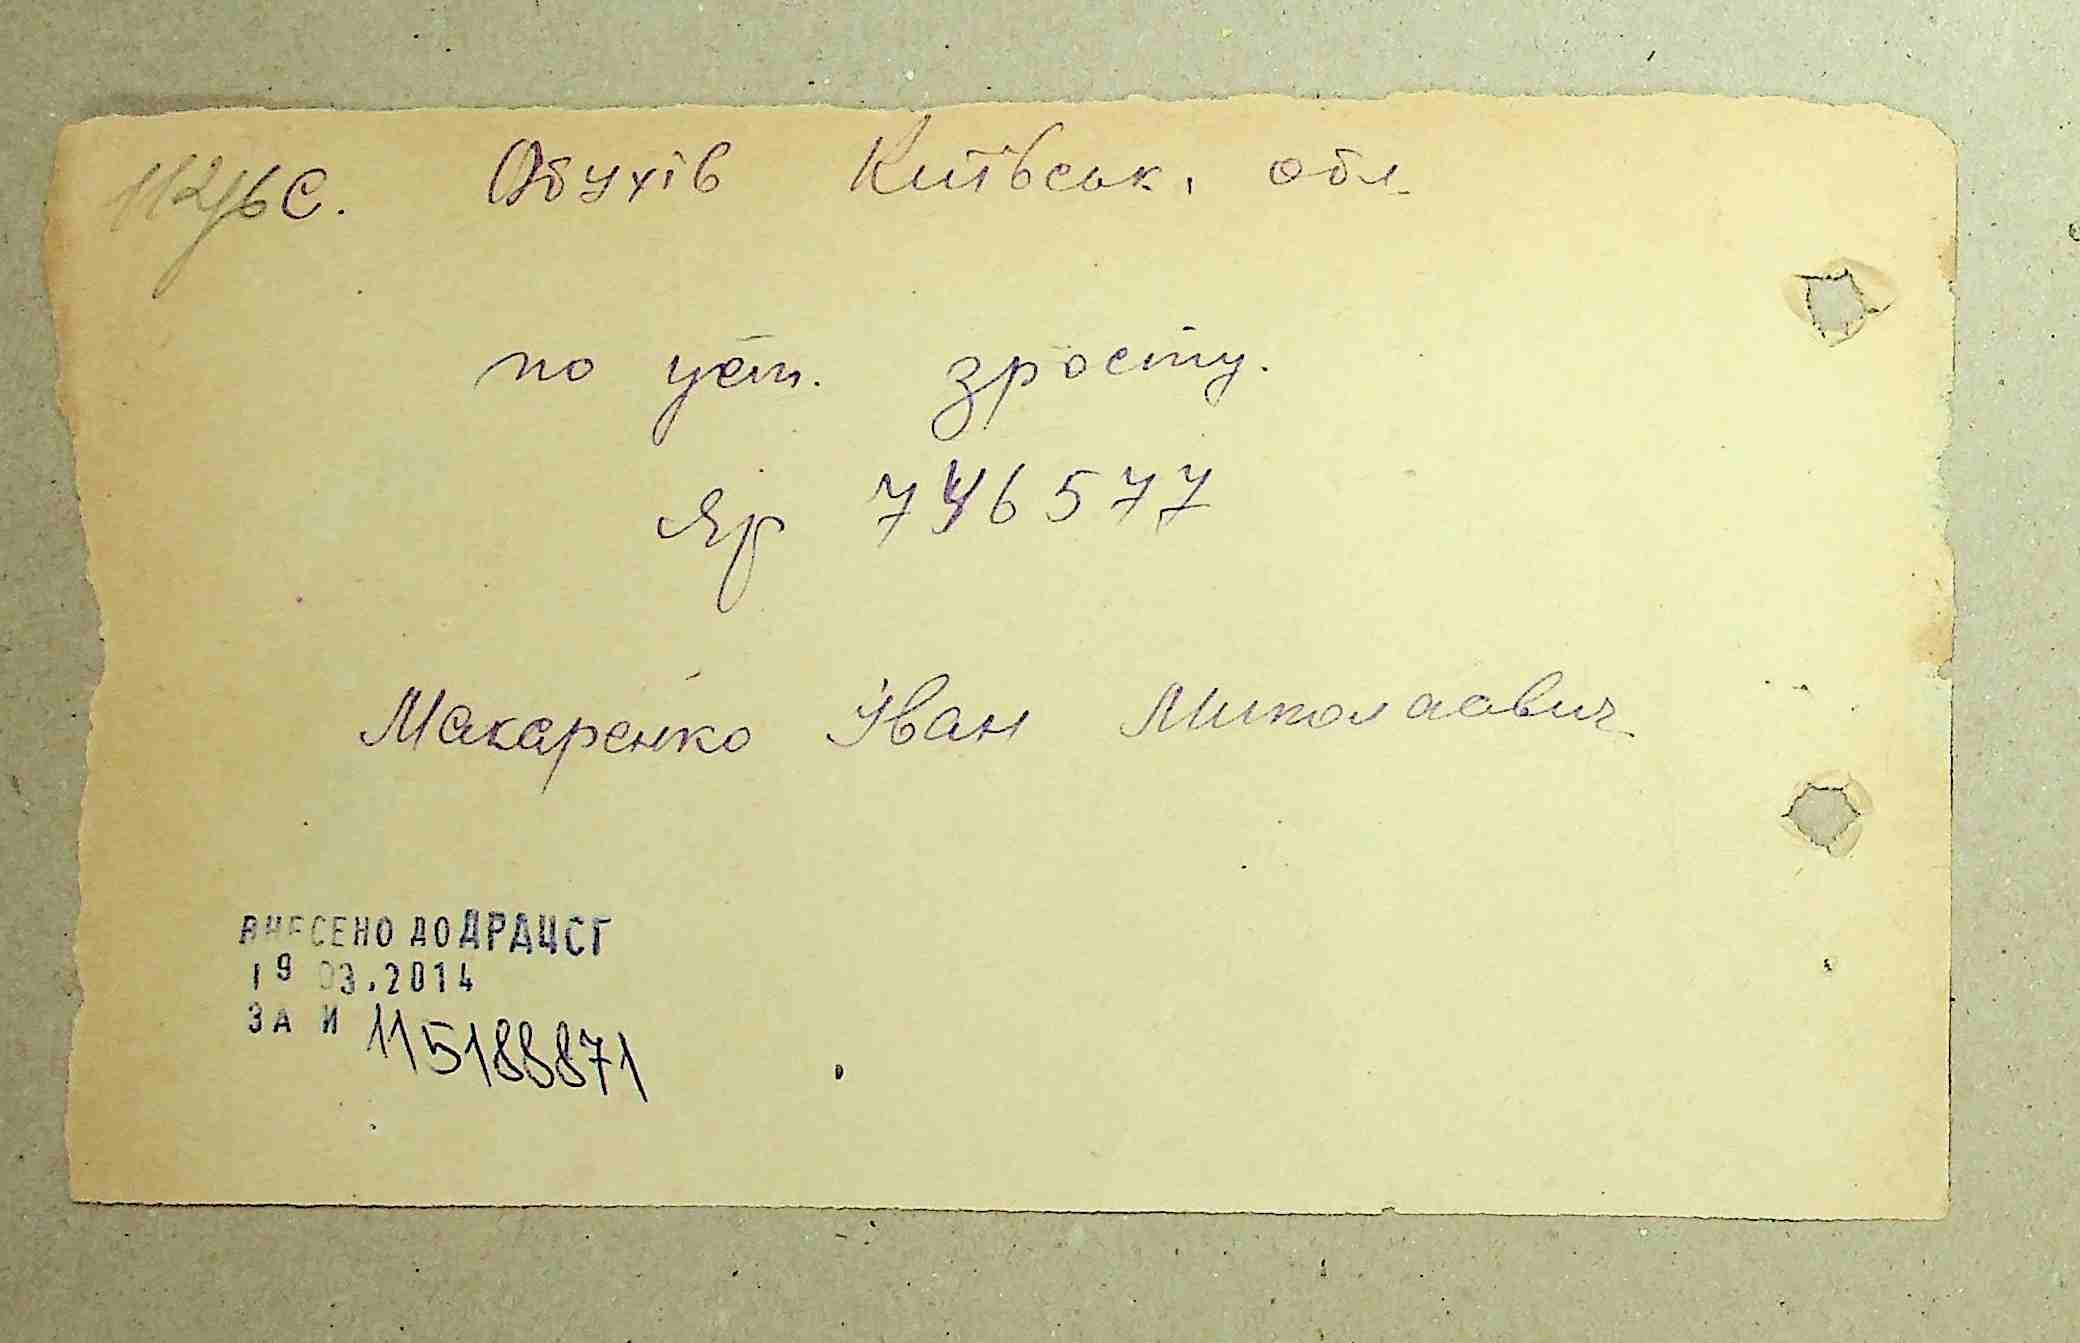 с. Обухів Київськ. обл.
по уст. зросту.
Яр 746577
Макаренко Іван Миколаович
ВНЕСЕНО ДО ДРАЦСГ
19 03.2014
ЗА И 115188871